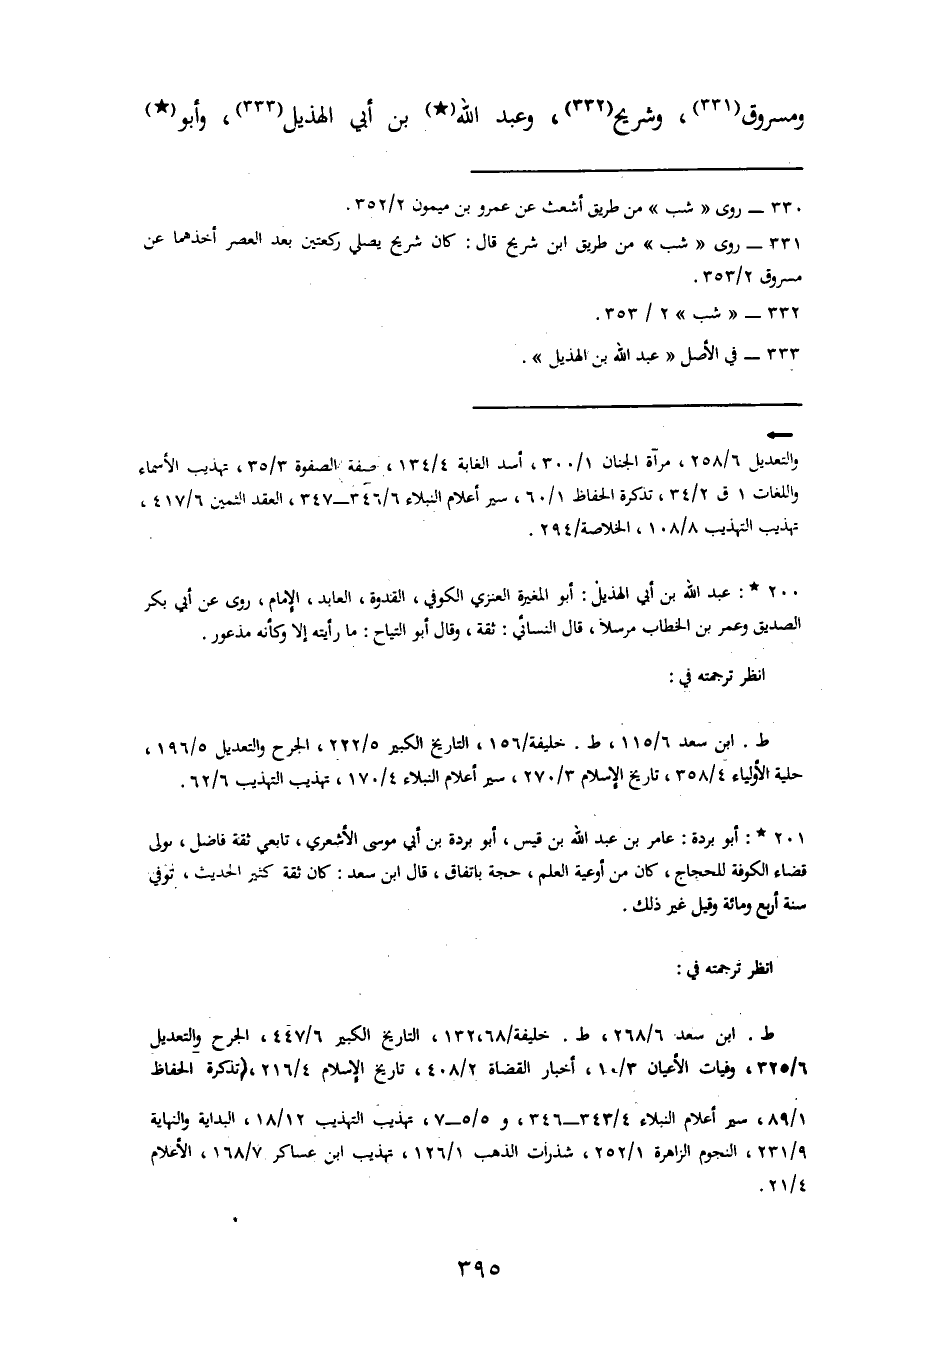 ومسروق(٣٣١) ، وشريح(٣٣٢) ، وعبد الله(★) بن أبي الهذيل(٣٣٣) ، وأبو(★)
٣٣٠ ـ روى « شب » من طريق أشعث عن عمرو بن ميمون ٣٥٢/٢ .
٣٣١ ـ روى « شب » من طريق ابن شريح قال : كان شريح يصلي ركعتين بعد العصر أخذهما عن
مسروق ٣٥٣/٢ .
٣٣٢ ـ « شب » ٢ / ٣٥٣ .
٣٣٣ ـ في الأصل « عبد الله بن الهذيل » .
←
والتعديل ٢٥٨/٦ ، مرآة الجنان ٣٠٠/١ ، أسد الغابة ١٣٤/٤ ، صفة الصفوة ٣٥/٣ ، تهذيب الأسماء
واللغات ١ ق ٣٤/٢ ، تذكرة الحفاظ ٦٠/١ ، سير أعلام النبلاء ٣٤٦/٦ـ٣٤٧ ، العقد الثمين ٤١٧/٦ ،
تهذيب التهذيب ١٠٨/٨ ، الخلاصة/٢٩٤ .
٢٠٠ ★ : عبد الله بن أبي الهذيل : أبو المغيرة العنزي الكوفي ، القدوة ، العابد ، الإمام ، روى عن أبي بكر
الصديق وعمر بن الخطاب مرسلاً ، قال النسائي : ثقة ، وقال أبو التياح : ما رأيته إلا وكأنه مذعور .
انظر ترجمته في :
ط . ابن سعد ١١٥/٦ ، ط . خليفة/١٥٦ ، التاريخ الكبير ٢٢٢/٥ ، الجرح والتعديل ١٩٦/٥ ،
حلية الأولياء ٣٥٨/٤ ، تاريخ الإسلام ٢٧٠/٣ ، سير أعلام النبلاء ١٧٠/٤ ، تهذيب التهذيب ٦٢/٦ .
٢٠١ ★ : أبو بردة : عامر بن عبد الله بن قيس ، أبو بردة بن أبي موسى الأشعري ، تابعي ثقة فاضل ، تولى
قضاء الكوفة للحجاج ، كان من أوعية العلم ، حجة باتفاق ، قال ابن سعد : كان ثقة كثير الحديث ، توفي
سنة أربع ومائة وقيل غير ذلك .
انظر ترجمته في :
ط . ابن سعد ٢٦٨/٦ ، ط . خليفة/١٣٢،٦٨ ، التاريخ الكبير ٤٤٧/٦ ، الجرح والتعديل
٣٢٥/٦ ، وفيات الأعيان ١٠/٣ ، أخبار القضاة ٤٠٨/٢ ، تاريخ الإسلام ٢١٦/٤ ،(تذكرة الحفاظ
٨٩/١ ، سير أعلام النبلاء ٣٤٣/٤ـ٣٤٦ ، و ٥/٥ـ٧ ، تهذيب التهذيب ١٨/١٢ ، البداية والنهاية
٢٣١/٩ ، النجوم الزاهرة ٢٥٢/١ ، شذرات الذهب ١٢٦/١ ، تهذيب ابن عساكر ١٦٨/٧ ، الأعلام
٢١/٤ .
٣٩٥